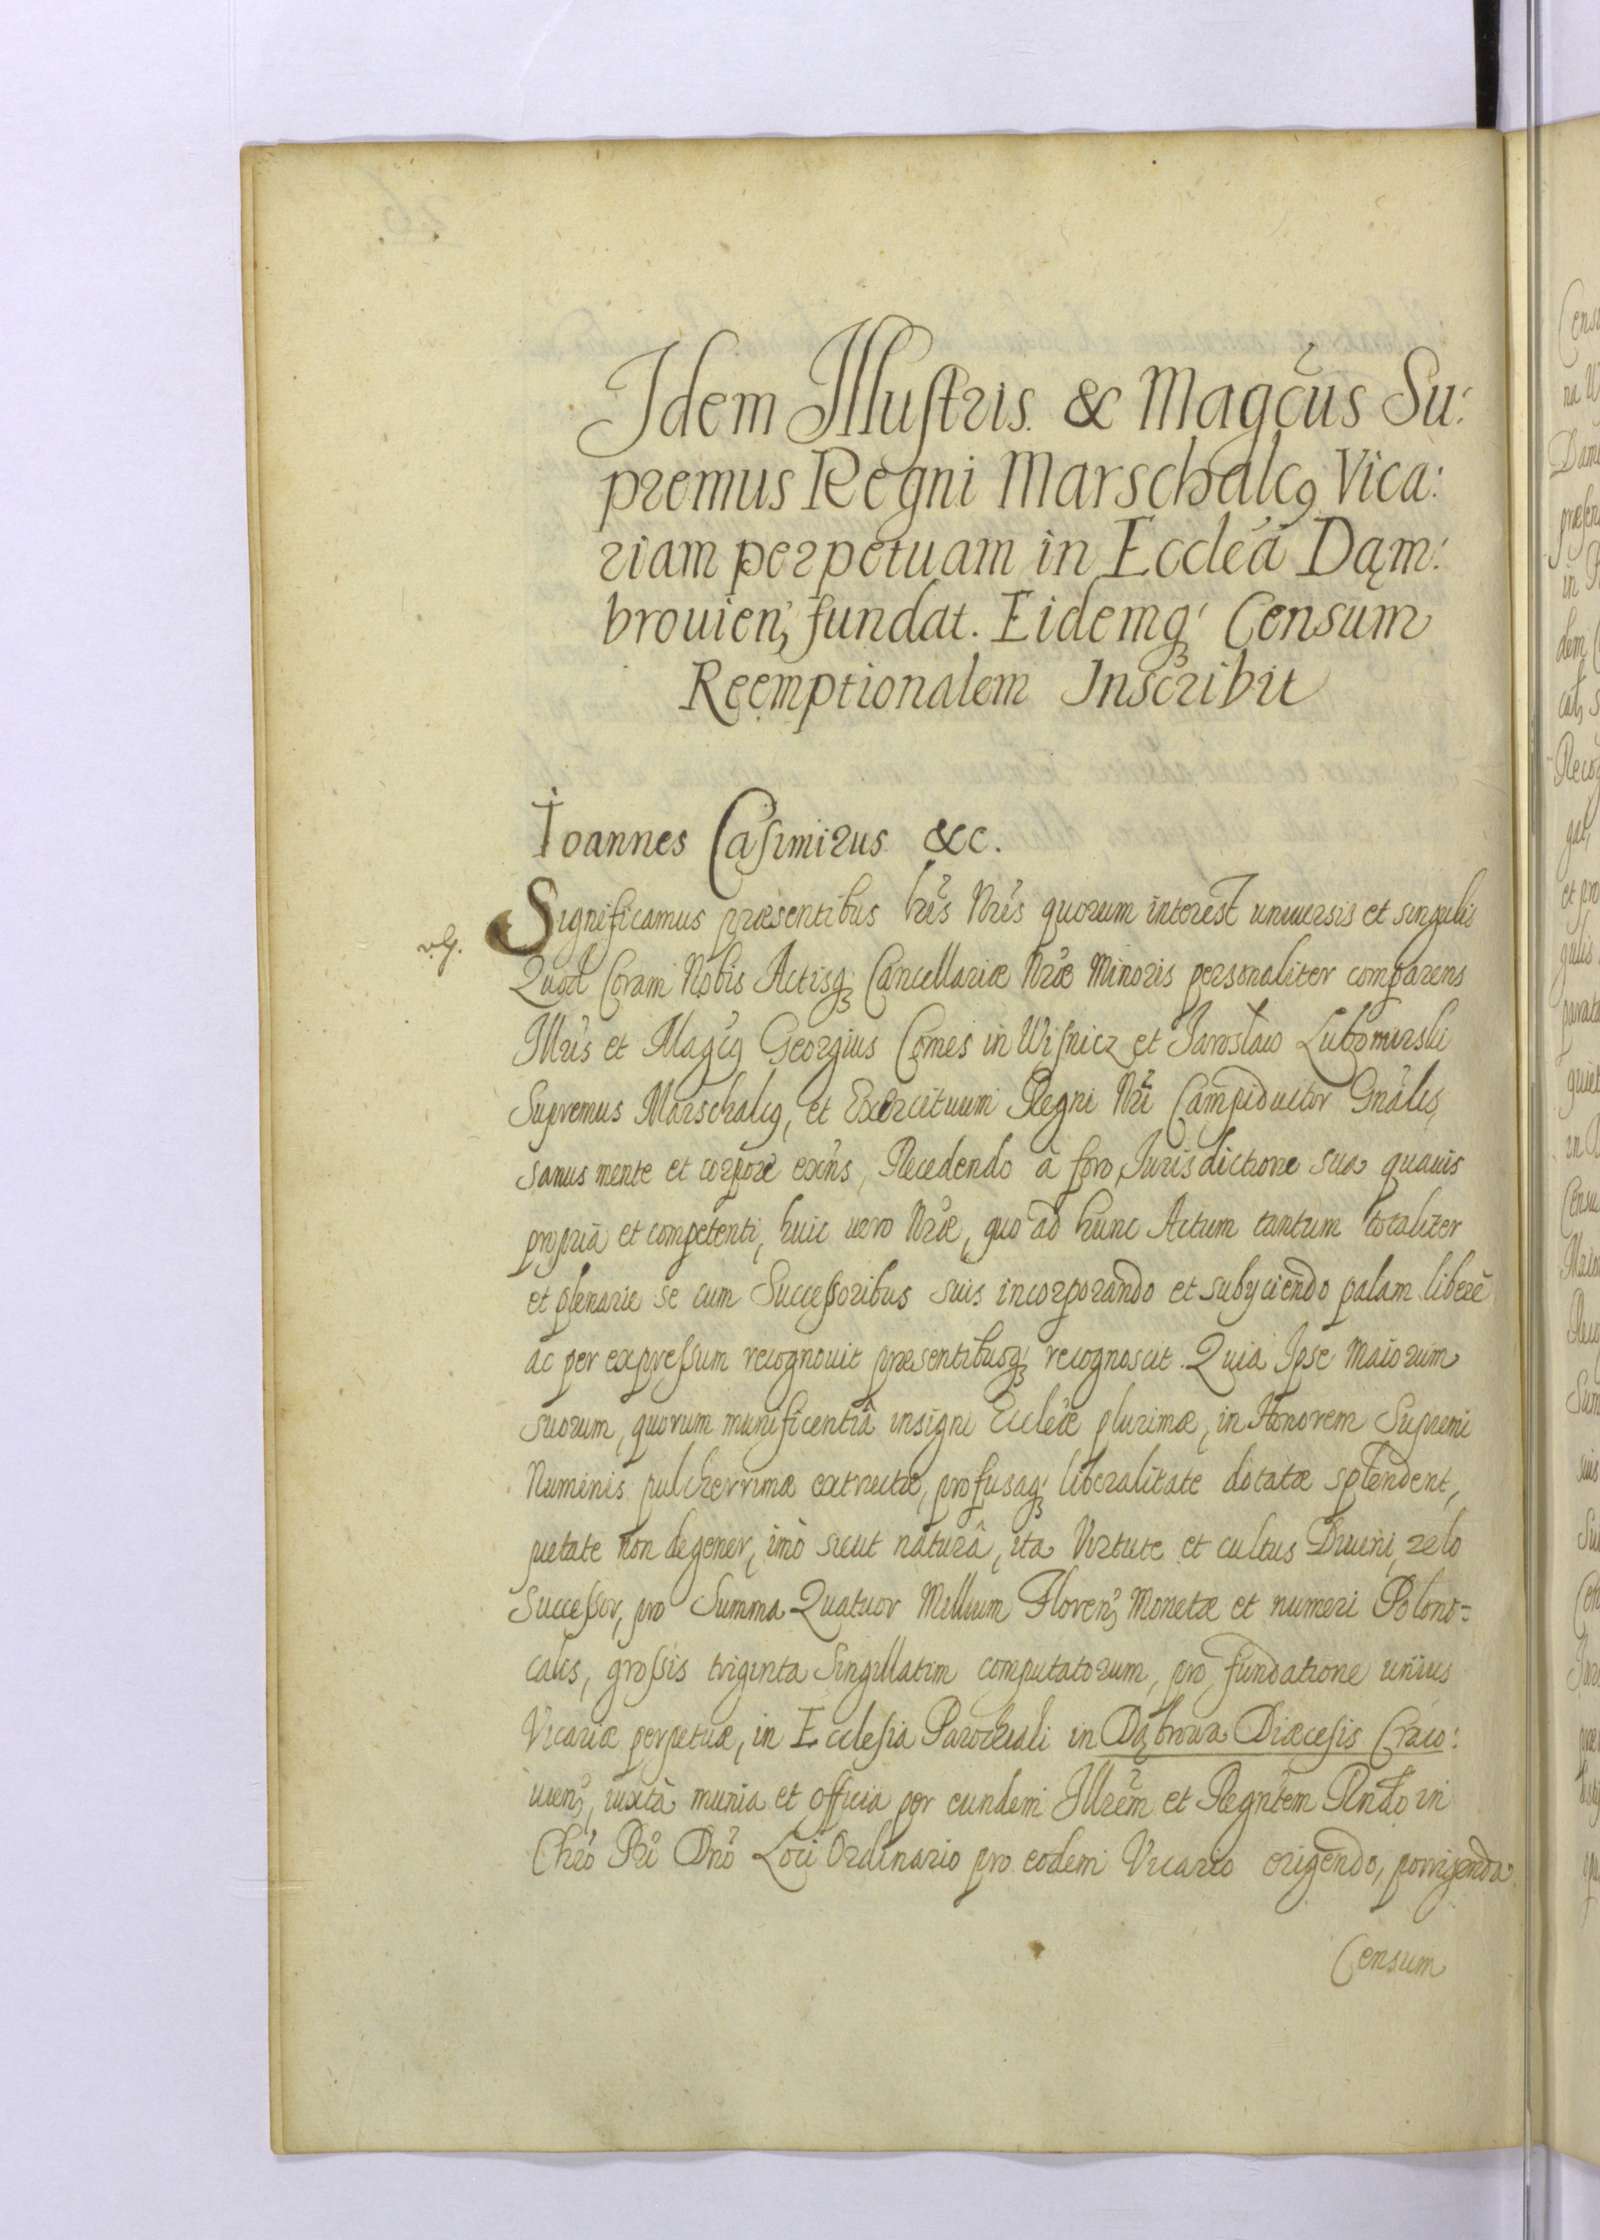 Idem Illustris & Magcus Su:
premus Regni Marschalcq Vica:
riam perpetuam in Ecclea Dąm:
brouien, fundat. Eidemq Censum
Reemptionalem Inscribit
Ioannes Casimirus &c.
Significamus præsentibus lris Nris quorum interest uniuersis et singulis
Quod Coram Nobis Actisq Cancellariæ Nræ Minoris personaliter comparens
Illris et Magcq Georgius Comes in Wisnicz et Jarosław Lubomirski
Supremus Marschalcq, et Exercituum Regni Nri Campiductor Gnalis,
sanus mente et corpore exns, Recedendo à foro, Jurisdictione sua quauis
propria et competenti, huic vero Nræ, quo ad hunc Actum tantum totaliter
et plenarie se cum Successoribus suis incorporando et subyciendo palam liberè
ac per expressum recognouit præsentibusq recognoscit. Quia Ipse Maiorum
suorum, quorum munificentiâ insigni Eccleæ plurimæ, in Honorem Supremi
Numinis pulcherrimæ extructæ, profusaq liberalitate dotatæ splendent,
pietate non degener, imò sicut naturâ, ita Virtute et cultus Diuini zelo
Successor, pro Summa Quatuor Millium Floren, Monetæ et numeri Polono=
calis, grossis triginta Singillatim computatorum, pro fundatione unius
Vicariæ perpetuæ, in Ecclesia Parochiali in Dąbrowa Diæcesis Craco:
uien, iuxtà munia et officia per eundem Illrem et Regntem Rndo in
Chro Pri Dno Loci Ordinario pro eodem Vicario erigendo, porrigenda
Censum